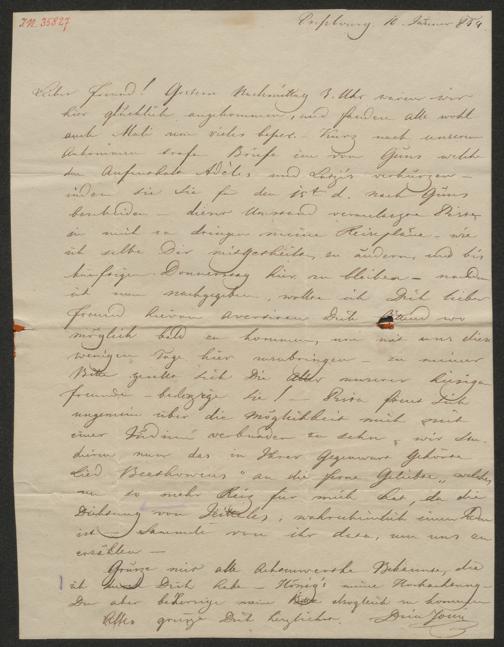 I.N. 35827
10. Jänner 854
Lieber Freund! Gestern Nachmittag 3 Uhr waren wir
hier glücklich angekommen, und fanden alle wohl
auch Mali um vieles besser. – Kurz nach unserem
Ankommen trafen Briefe ein von Güns welche
den Aufenthalt Adèles und verkürzen –
indem sie Sie für den 15t d. nach Güns
– dieser Umstand veranlasste
in mich zu dringen meine Reisepläne – wie
ich selbe Dir mitgetheilt, zu ändern, und bis
künftigen Donnerstag hier zu bleiben – nachdem
ich nun nachgegeben, wollte ich Dich lieber
Freund hievon avertiren Dich bittend wo
möglich bald zu kommen, um mit uns diese
wenigen Tage hier zuzubringen – zu meiner
Bitte gesellt sich die aller unserer hiesigen
Freunde – Sie! – freut sich
ungemein über die Möglichkeit mich mit
einer verbunden zu sehen, wir
nun das in Ihrer Gegenwart gehörte
Lied Beethovens "an die ferne Geliebte" welches
um so mehr Reiz für mich hat, da die
Dichtung von Jeitteles, wahrscheinlich einem
ist – von ihr dazu, um uns zu
erzählen –
Grüsse mir alle Bekannte, die
ich durch Dich habe – König's meine Hochachtung –
Du aber meine Bitte ehmöglich zu kommen
Alles grüsst Dich herzlichst. Dein